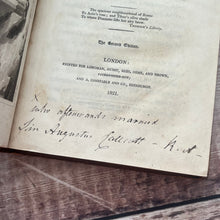 The spacious conglomeration of Rome
The Second Edition.
LONDON:
PRINTED FOR LONGMAN, HURST, REES, ORME, AND BROWN,
PATERNOSTER-ROW;
AND A. CONSTABLE AND CO., EDINBURGH.
1821.
who afterwards married
Sir Augustus Callcott - R.A